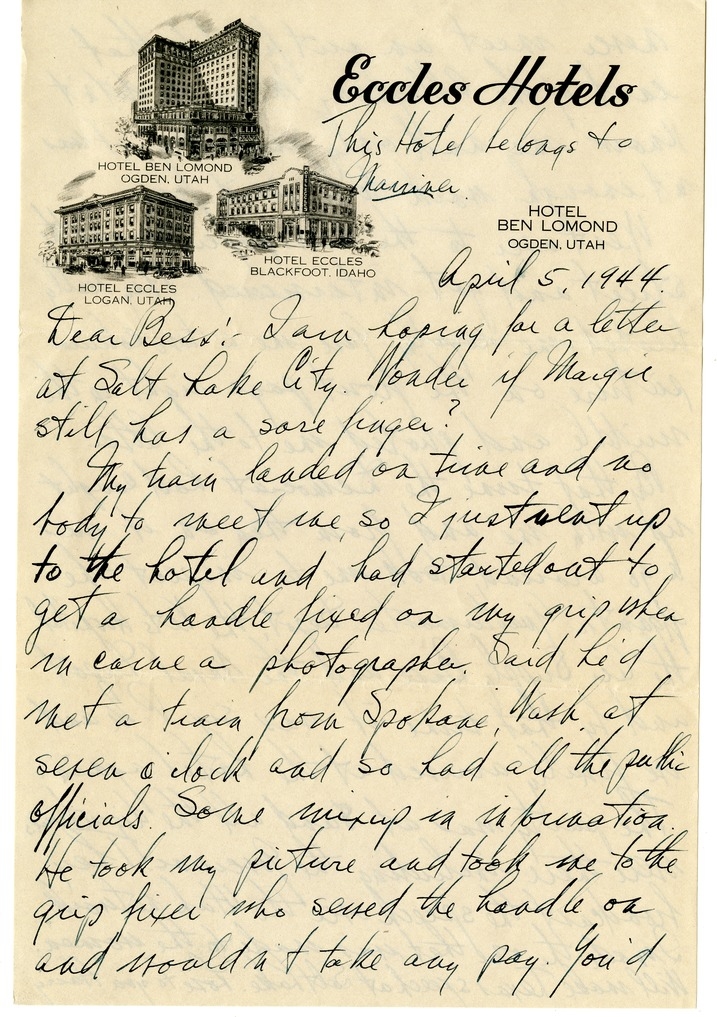 Eccles Hotels
This Hotel belongs to
HOTEL BEN LOMOND
OGDEN, UTAH
HOTEL ECCLES
BLACKFOOT, IDAHO
HOTEL ECCLES
LOGAN, UTAH
HOTEL
BEN LOMOND
OGDEN, UTAH
April 5, 1944.
Dear Bess:- I am hoping for a letter
at Salt Lake City. Wonder if Margie
still has a sore finger?
My train landed on time and no
body to meet me, so I just went up
to the hotel and had started out to
get a handle fixed on my grip when
in came a photographer. Said he'd
met a train from Spokane, Wash. at
seven o'clock and so had all the public
officials. Some mixup in information.
He took my picture and took me to the
grip fixer who sewed the handle on
and wouldn't take any pay. You'd